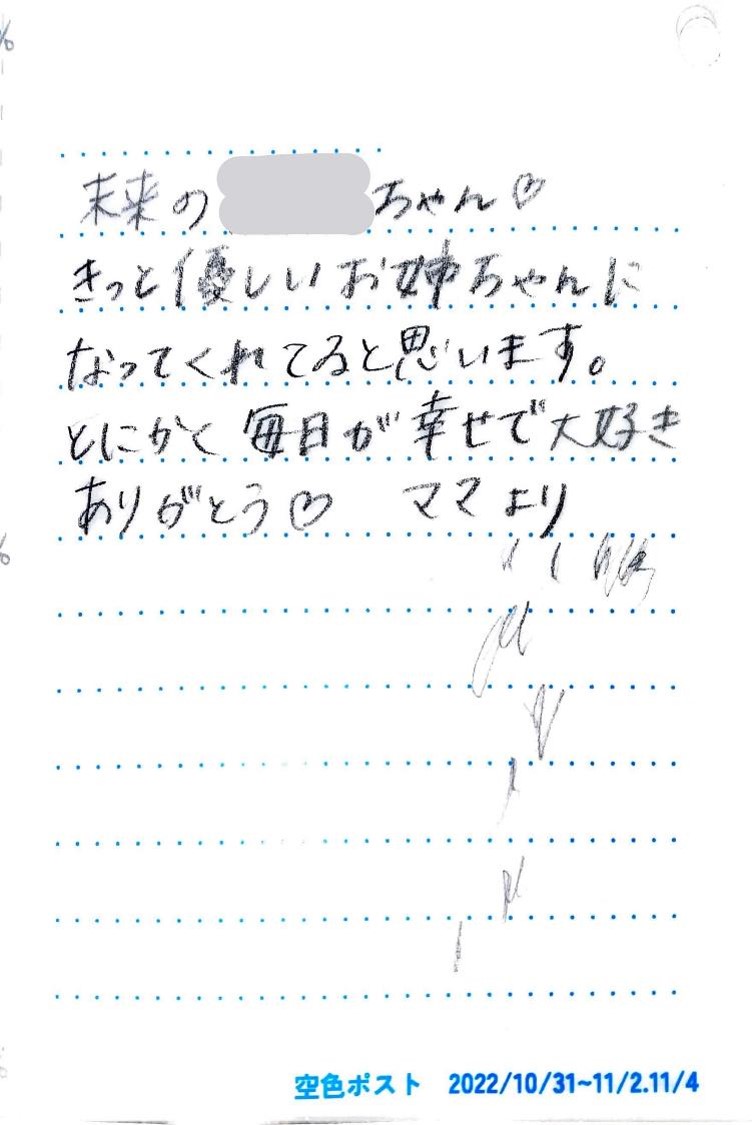 未来の ちゃん♡
きっと優しいお姉ちゃんに
なってくれてると思います。
とにかく毎日が幸せで大好き
ありがとう♡ ママより
空色ポスト 2022/10/31~11/2.11/4